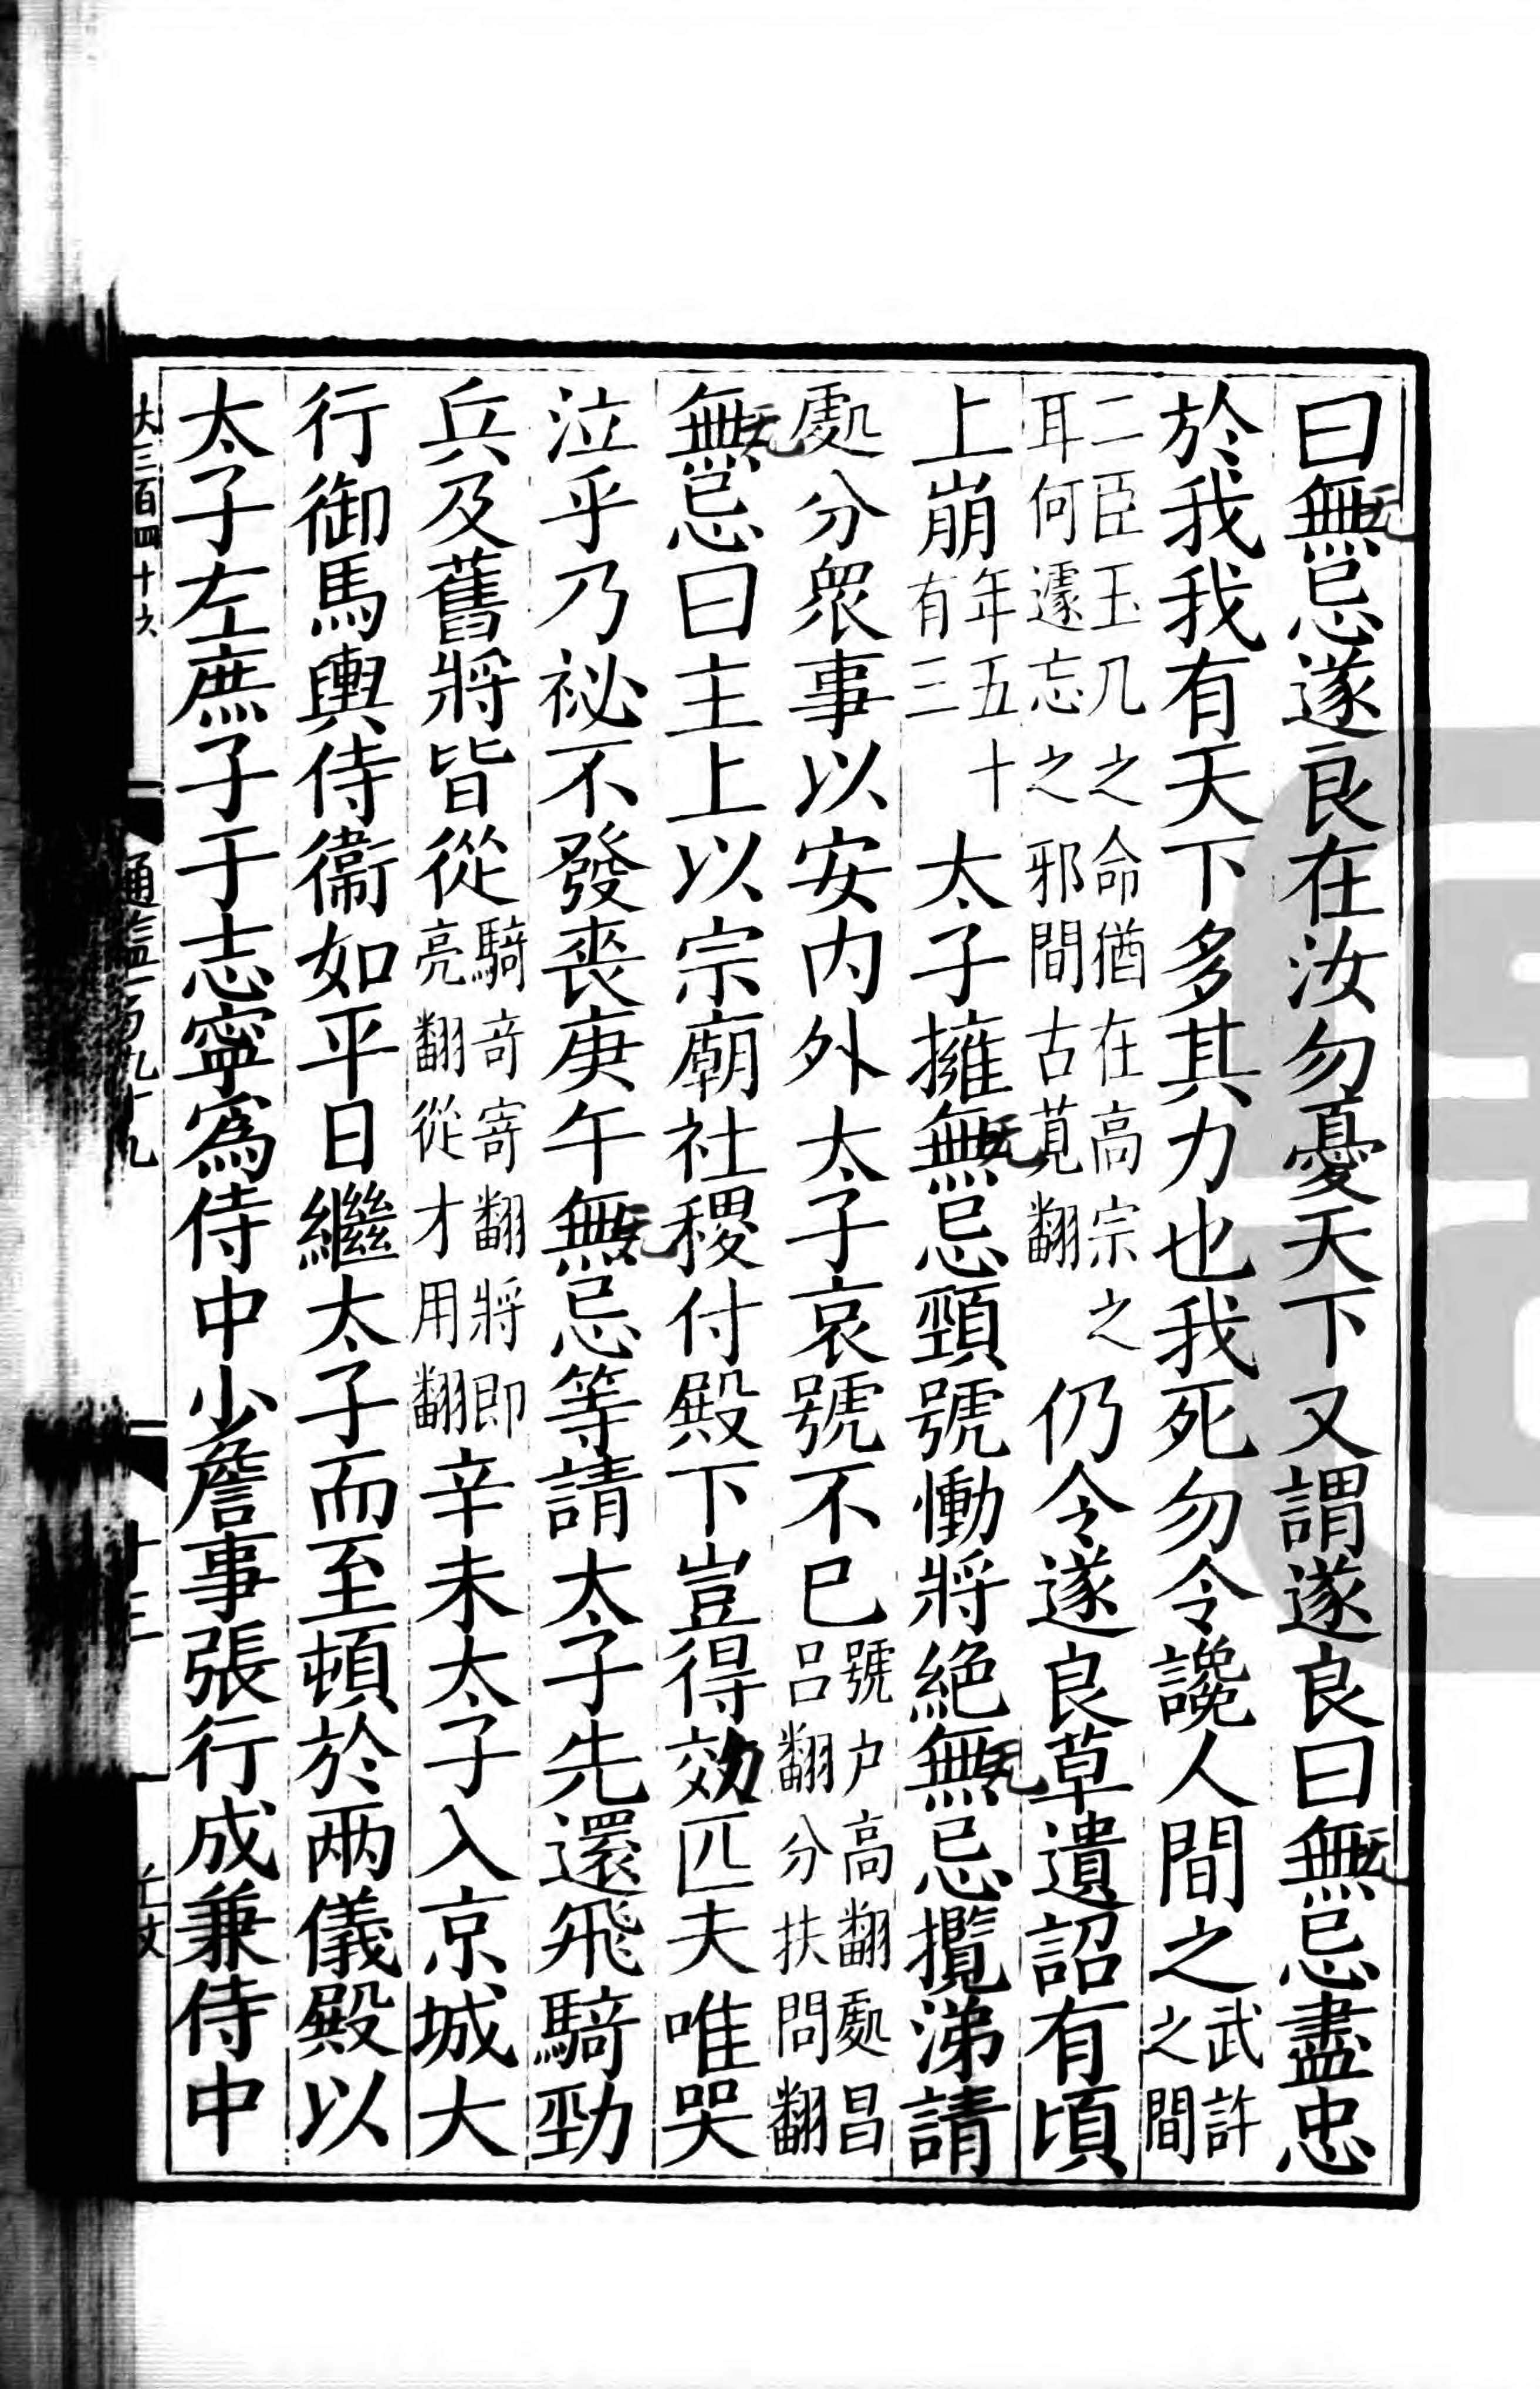 曰無忌遂良在汝勿憂天下又謂遂良曰無忌盡忠
於我我有天下多其力也我死勿令讒人間之武許之間
二臣玉几之命猶在高宗之耳何遽忘之邪間古莧翻仍令遂良草遺詔有頃
上崩年五十有三太子擁無忌頸號慟將絕無忌攬涕請
處分衆事以安内外太子哀號不已號户高翻處昌吕翻分扶問翻
無忌曰主上以宗廟社稷付殿下豈得效匹夫唯哭
泣乎乃祕不發喪庚午無忌等請太子先還飛騎勁
兵及舊將皆從騎奇寄翻將即亮翻從才用翻辛未太子入京城大
行御馬輿侍衞如平日繼太子而至頓於兩儀殿以
太子左庶子于志寧爲侍中少詹事張行成兼侍中
大三百四十六
通鑑一百九十九
十三